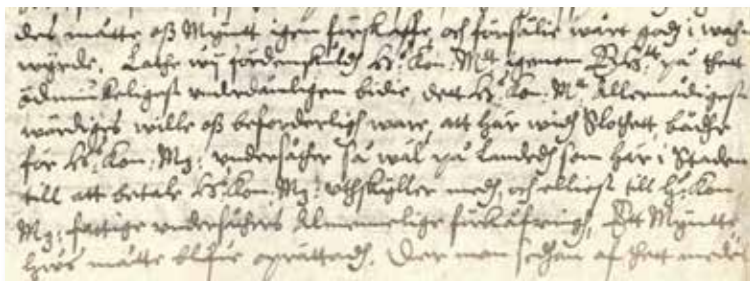 det måtte oß Myntt igen förskaffe, och försälie wårt godz i wahn
wyrde. Lathe wij fördenskuldh H: Kon: Mtt igenom på thett
ödmiukeligest underdånligen bidie, dett H: Kon: Mtt Allernådigest
wärdiges wille oß beforderligh ware, att här widh Slottett, både
för H: Kon: May: undersåther så wäl på Landedh som här i Staden
till att betale H: Kon: May: uthskyller medh, och elliest till H: Kon
May: fattige undersåthers Almennelige förkåfringh, Ett Myntte
hws måtte blifue oprättadh. Der man sedhan af thett medh